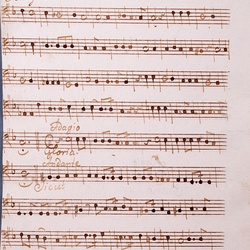 Adagio
Gloria
Andante
Sicut